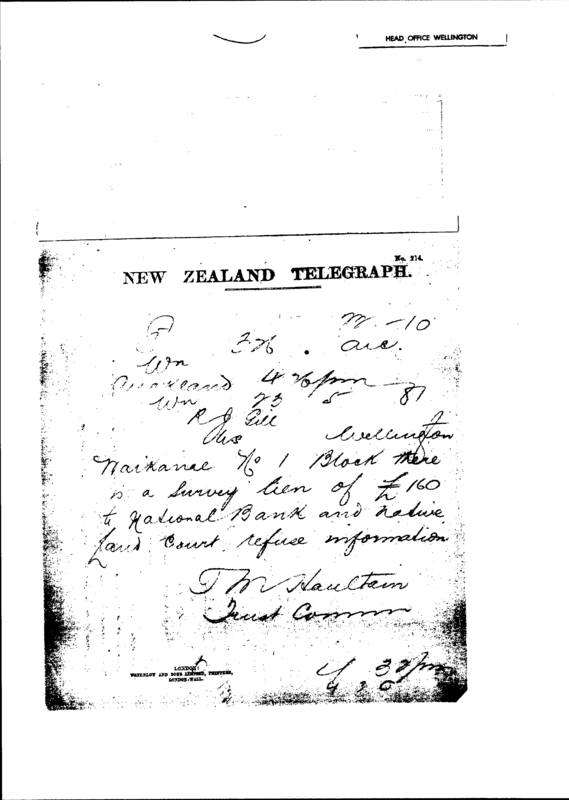 HEAD OFFICE WELLINGTON
No. 214.
NEW ZEALAND TELEGRAPH.
Wn 326.
Auckland 4 26 pm
Wn 23 5 87
R J Gill
Wellington
Waikanae No 1 Block there
is a survey lien of £160
to National Bank and Native
Land Court refuse information
T M Haultain
Trust Commr
LONDON:
WATERLOW AND SONS LIMITED, PRINTERS,
LONDON WALL.